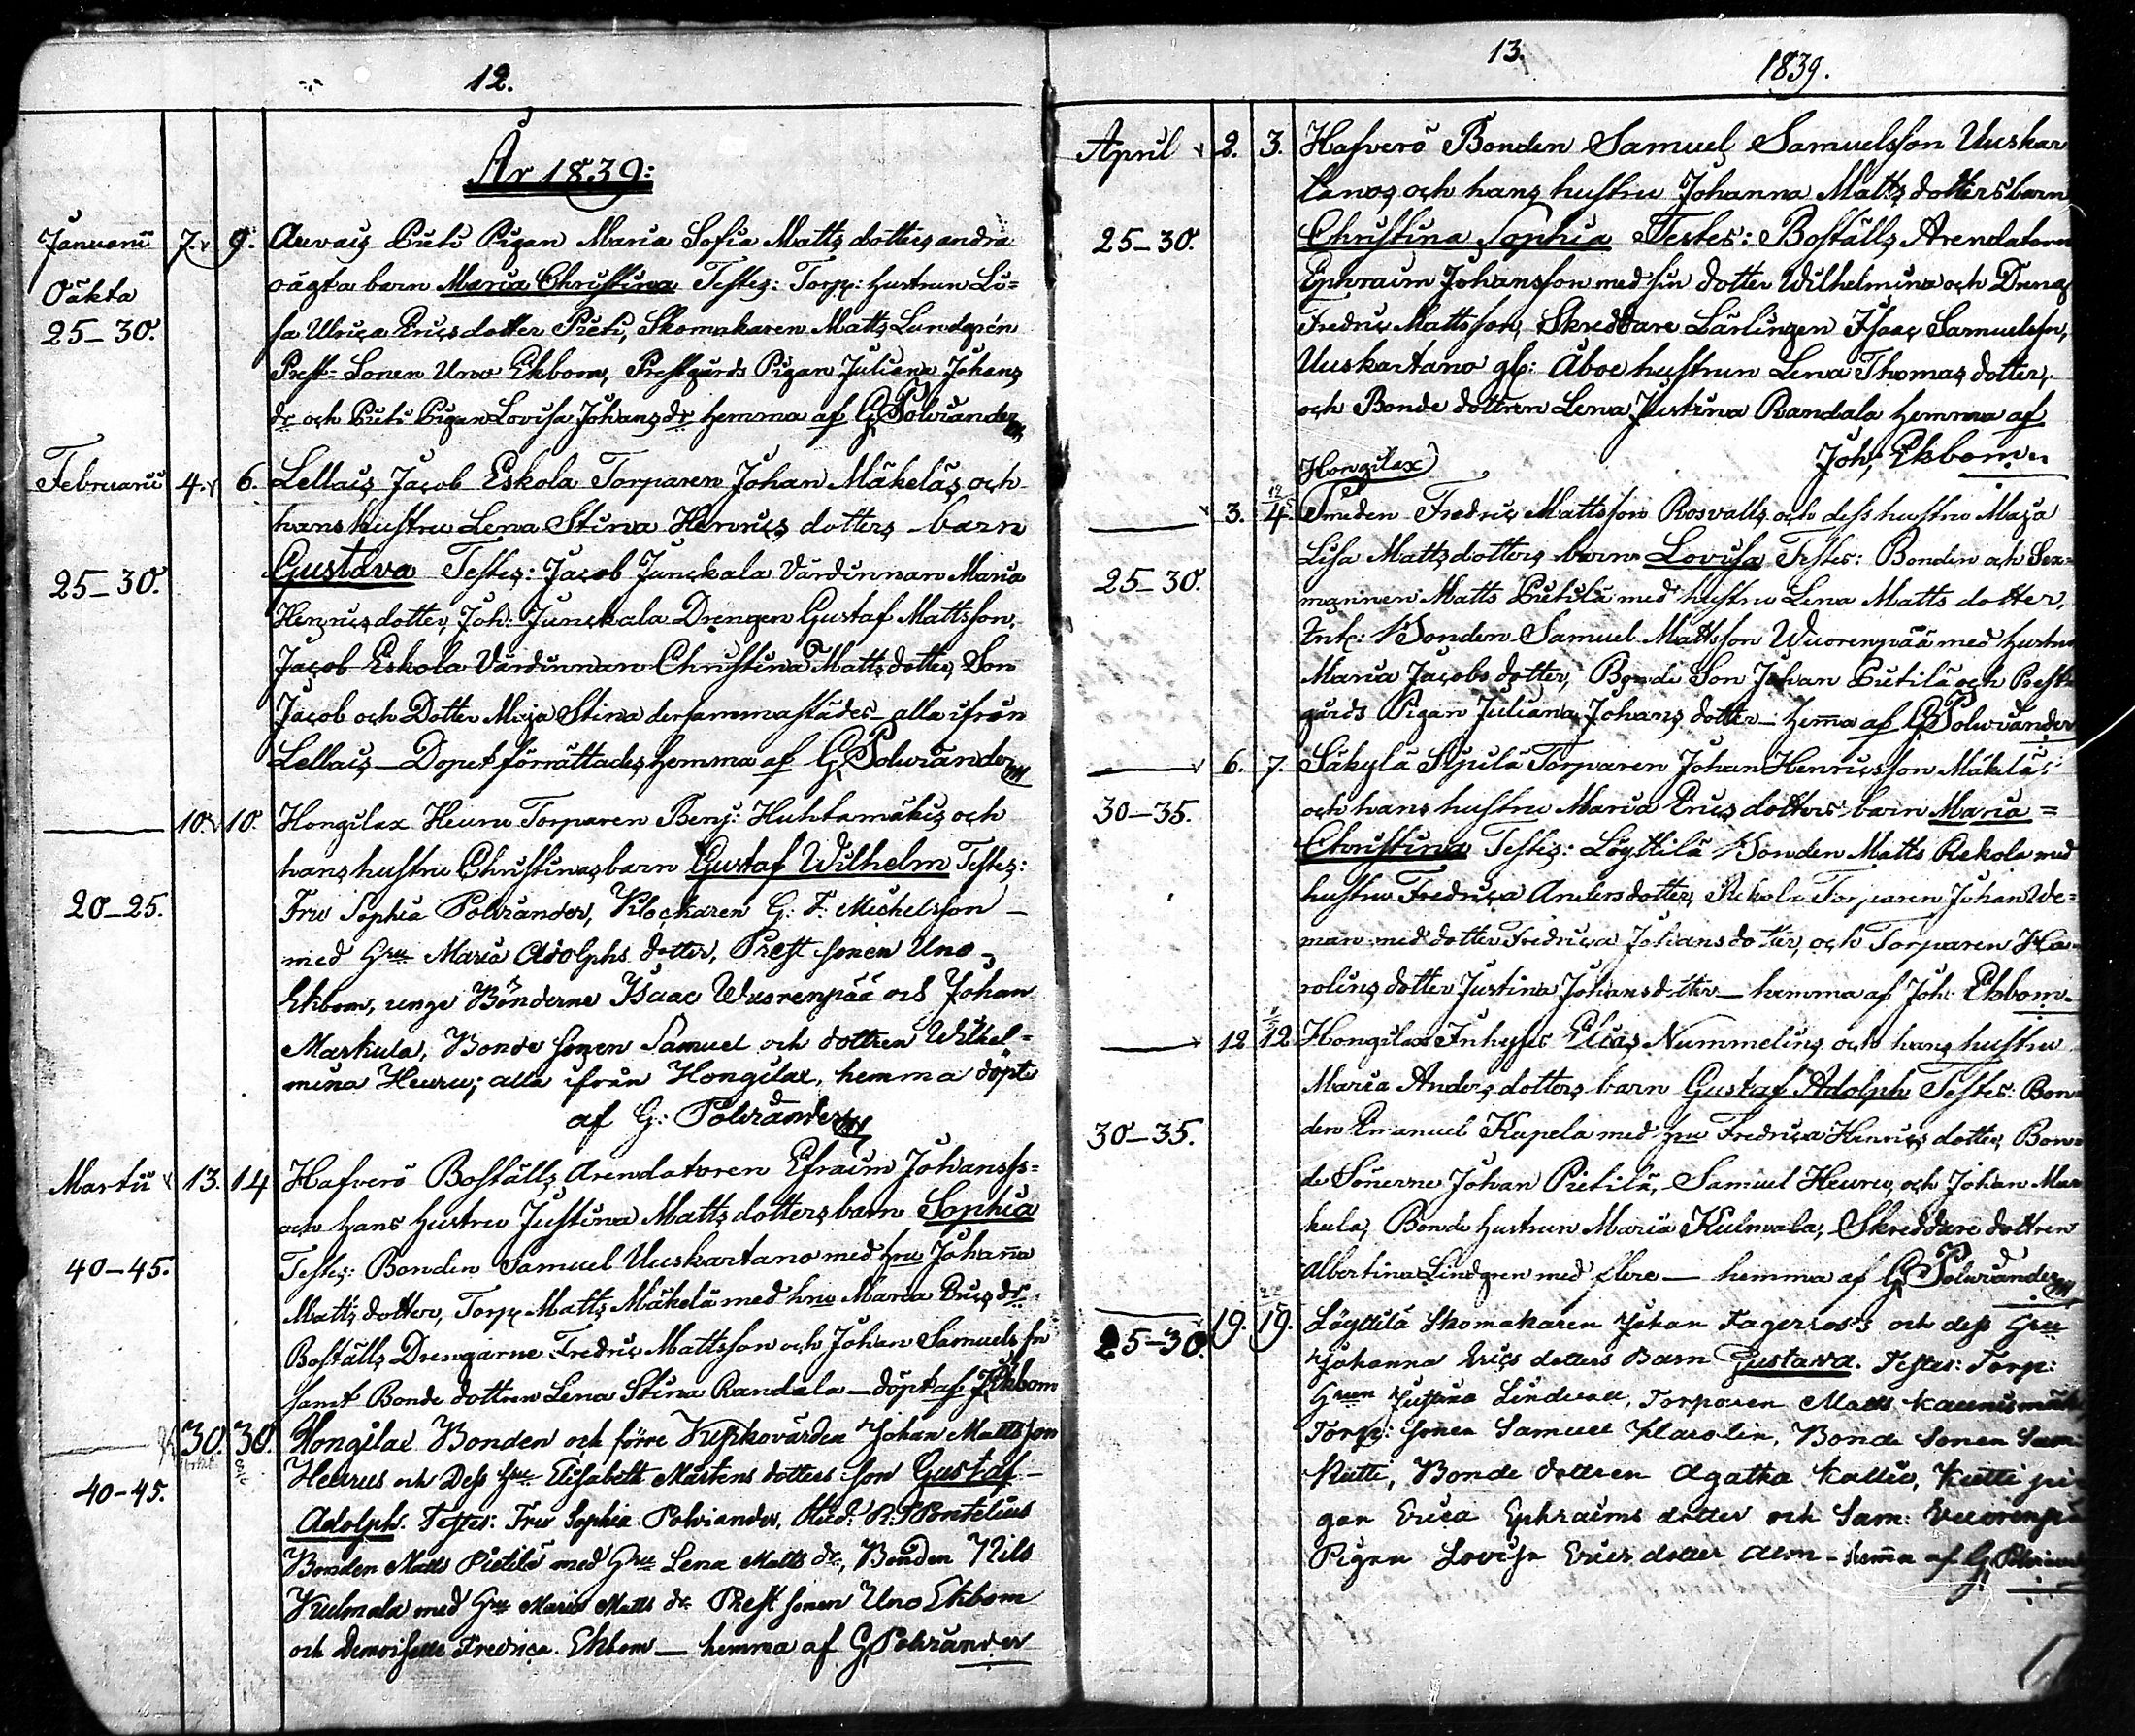 12.
År 1839:
Januarii 7. 9. Auvais Pieti Pigan Maria Sofia Matts dotters andra
Oäkta oägta barn Maria Christina Testes: Torp: hustrun Li=
25-30. sa Ulrica Ericsdotter Pieti, Skomakaren Matts Lundgrén
Prest=Sonen Uno Ekbom, Prestgårds Pigan Juliana Johans
dr och Pieti Pigan Lovisa Johans dr hemma af G Polviander
Februarii 4. 6. Lellais Jacob Eskola Torparen Johan Mäkeläs och
hans hustru Lena Stina Henrics dotters barn
25-30. Gustava Testes: Jacob Junckala Värdinnan Maria
Henricsdotter, Joh: Junckala Drengen Gustaf Mattsson,
Jacob Eskola Värdinnan Christina Mattsdotter, Son
Jacob och Dotter Maja Stina dersammastädes - alla ifrån
Lellais - Dopet förrättades hemma af G Polviander
10. 10. Hongilax Heuru Torparen Benj: Huhtamäkis och
hans hustru Christinas barn Gustaf Wilhelm Testes:
20-25. Fru Sophia Polviander, Klockaren G: F: Michelsson
med Hru Maria Adolphs dotter, Prest sonen Uno
Ekbom, unge Bönderne Isaac Wuorenpää och Johan
Markula, Bonde sonen Samuel och dottren Wilhel=
mina Heuru; alla ifrån Hongilax, hemma döpt
af G: Polviander
Martii 13. 14 Hafverö Boställs Arendatoren Efraim Johanss=
och hans hustru Justina Matts dotters barn Sophia
40-45. Testes: Bonden Samuel Uuskartano med hru Johanna
Matts dotter, Torp Matts Mäkelä med hru Maria Erics dr
Boställs Drengarne Fredric Mattsson och Johan Samuelsson
samt Bonde dottren Lena Stina Randala - döpt af J Ekbom
30. 30. Hongilax Bonden och förre Kyrkovärden Johan Mattsson
Heurus och Dess hru Elisabeth Mårtens dotters son Gustaf
40-45. Adolph. Testes: Fru Sophia Polviander, Stud: R: Pontelius
Bonden Matts Pietilä med Hru Lena Matts dr, Bonden Nils
Kulmala med Hru Maria Matts dr Prest sonen Uno Ekbom
och Demoiselle Fredrica Ekbom - hemma af G Polviander
13. 1839.
April 2. 3. Hafverö Bonden Samuel Samuelsson Uuskar
tanos och hans hustru Johanna Matts dotters barn
25-30. Christina Sophia Testes: Boställs Arendatorn
Ephraim Johansson med sin dotter Wilhelmina och Dreng
Fredric Mattsson, Skreddare Lärlingen Isaac Samuelsn,
Uuskartano gl: Åboe hustrun Lena Thomas dotter,
och Bonde dottren Lena Justina Randala hemma af
Joh: Ekbom
Hongilax
3. 4. Smeden Fredric Mattsson Rosvalls och dess hustru Maja
Lisa Matts dotters barn Lovisa Testes: Bonden och Sex=
25-30. mannen Matts Pietilä med hustru Lena Matts dotter,
Bonden Samuel Mattsson Wuorenpää med hustru
Maria Jacobs dotter, Bonde Son Johan Pietilä och Prest
gårds Pigan Juliana Johans dotter - hemma af G Polviander
6. 7. Säkylä Torparen Johan Henricsson Mäkelä
30-35. och hans hustru Maria Erics dotters barn Maria=
Christina Testes: Löyttilä Bonden Matts Rekola med
hustru Fredrica Anders dotter, Rekola Torparen Johan We=
man med dotter Fredrica Johans dotter, och Torparen Ka=
rolins dotter Justina Johans dotter - hemma af Joh: Ekbom
12 12 Hongilax Inhyses Elias Nummelins och hans hustru
Maria Anders dotters barn Gustaf Adolph Testes: Bon=
30-35. den Emanuel Kupela med hru Fredrica Henrics dotter, Bon=
de Sönerne Johan Pietilä, Samuel Heuru, och Johan Mar
kula, Bonde hustrun Maria Kulmala, Skreddare dottren
Albertina Lindgren med flere - hemma af G Polviander
19. 19. Löyttilä Skomakaren Johan Fagerros's och dess Hru
25-30. Johanna Erics dotters Barn Gustava. Testes: Torp:
Hrun Justina Lindvall, Torparen Matts Kaunismäki
Torp: sonen Samuel Karolin, Bonde Sonen Sam:
Kutti, Bonde dottren Agatha Kallio, Kutti pi
gan Erica Ephraims dotter och Sam: Vuorenpä
Pigan Lovisa Erics dotter - hemma af G Polviand